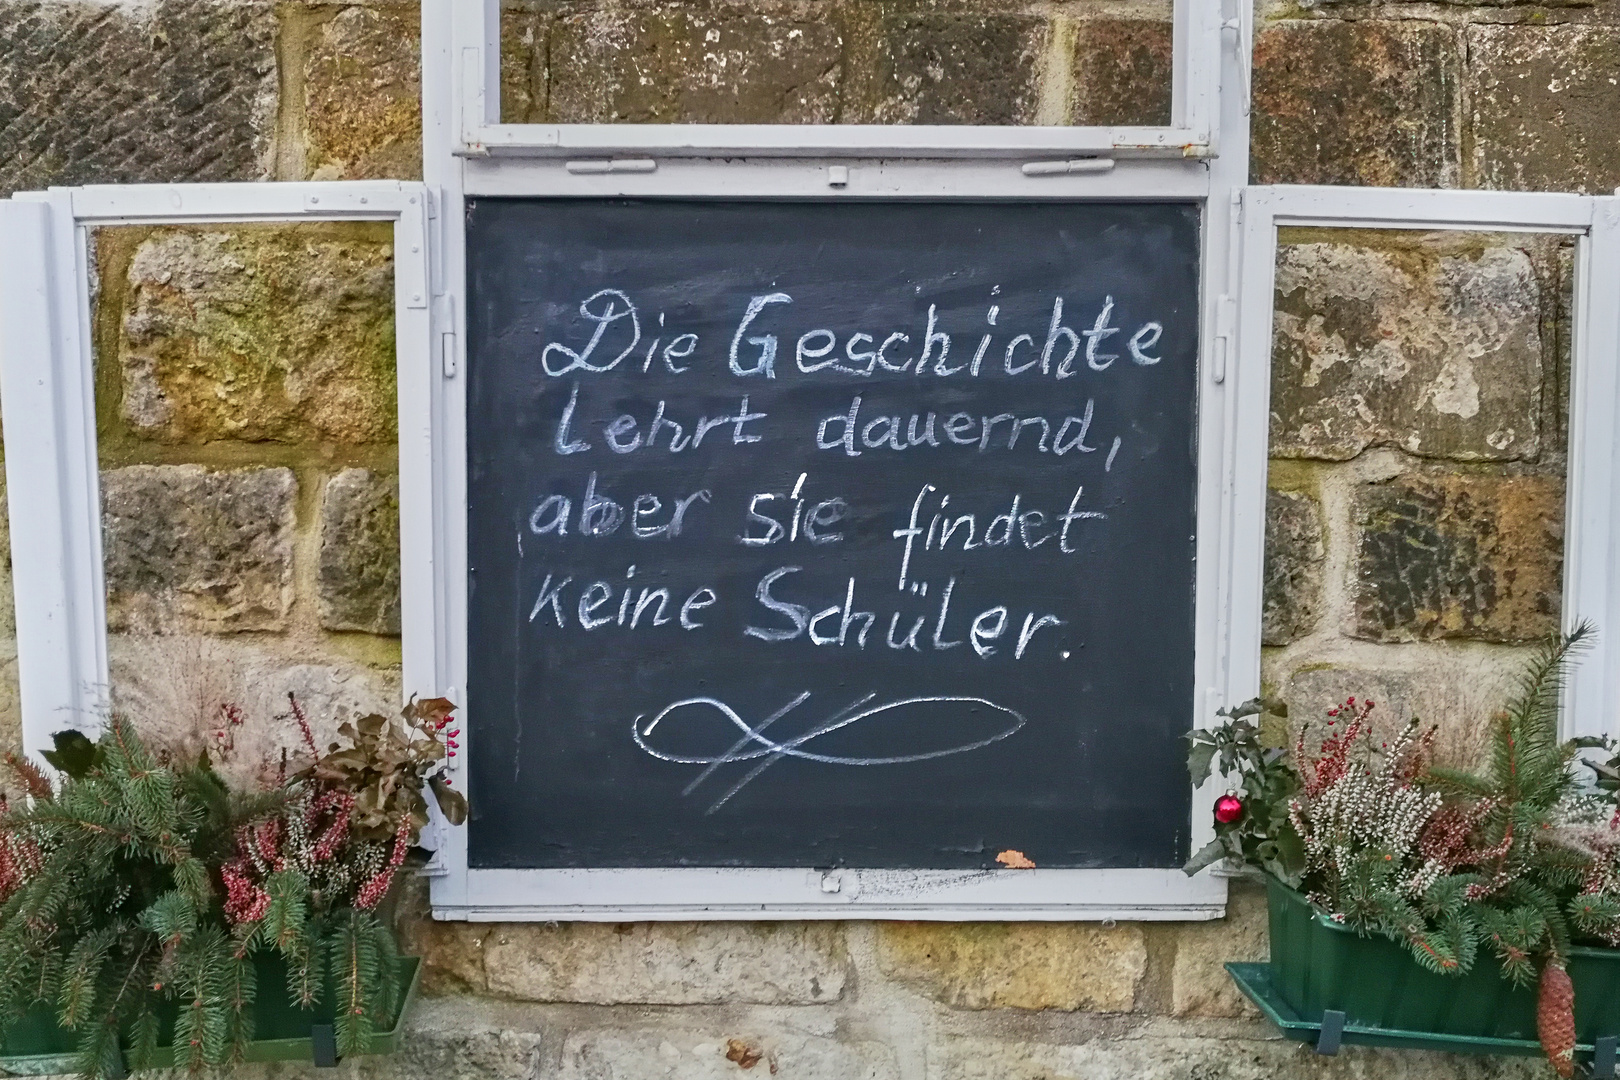 Die Geschichte
lehrt dauernd,
aber sie findet
keine Schüler.